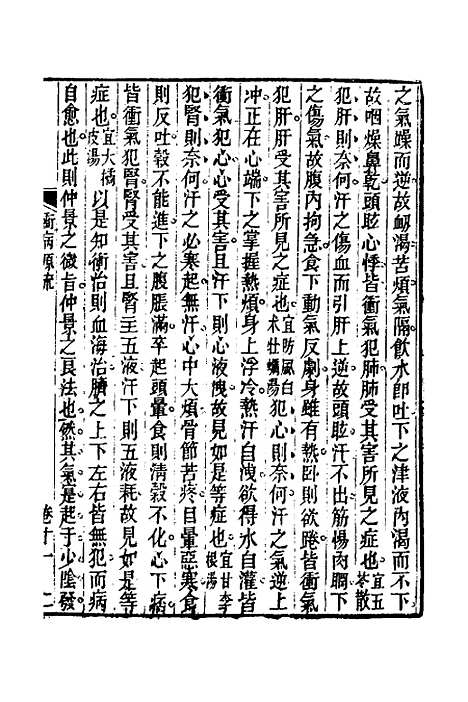 之氣躁而逆故衂渴苦煩氣隔飲水即吐下之津液内渴而不下
故咽燥鼻乾頭眩心悸皆衝氣犯肺肺受其害所見之症也宜五苓散
犯肝則奈何汗之傷血而引肝上逆故頭眩汗不出筋惕肉瞤下
之傷氣故腹内拘急食下動氣反劇身雖有熱卧則欲踡皆衝氣
犯肝肝受其害所見之症也宜防風白朮牡蠣湯犯心則奈何汗之氣逆上
冲正在心端下之掌握熱煩身上浮冷熱汗自洩欲得水自灌皆
衝氣犯心心受其害且汗下則心液洩故見如是等症也宜甘李根湯
犯腎則奈何汗之必寒起無汗心中大煩骨節苦疼目暈惡寒食
則反吐穀不能進下之腹脹滿卒起頭暈食則清穀不化心下
皆衝氣犯腎腎受其害且腎主五液汗下則五液耗故見如是等
症也宜大橘皮湯以是知衝治則血海治臍之上下左右皆無犯而病
自愈也此則仲景之微旨仲景之良法也然其氣是起于少陰發
衝病源流
卷十一
二